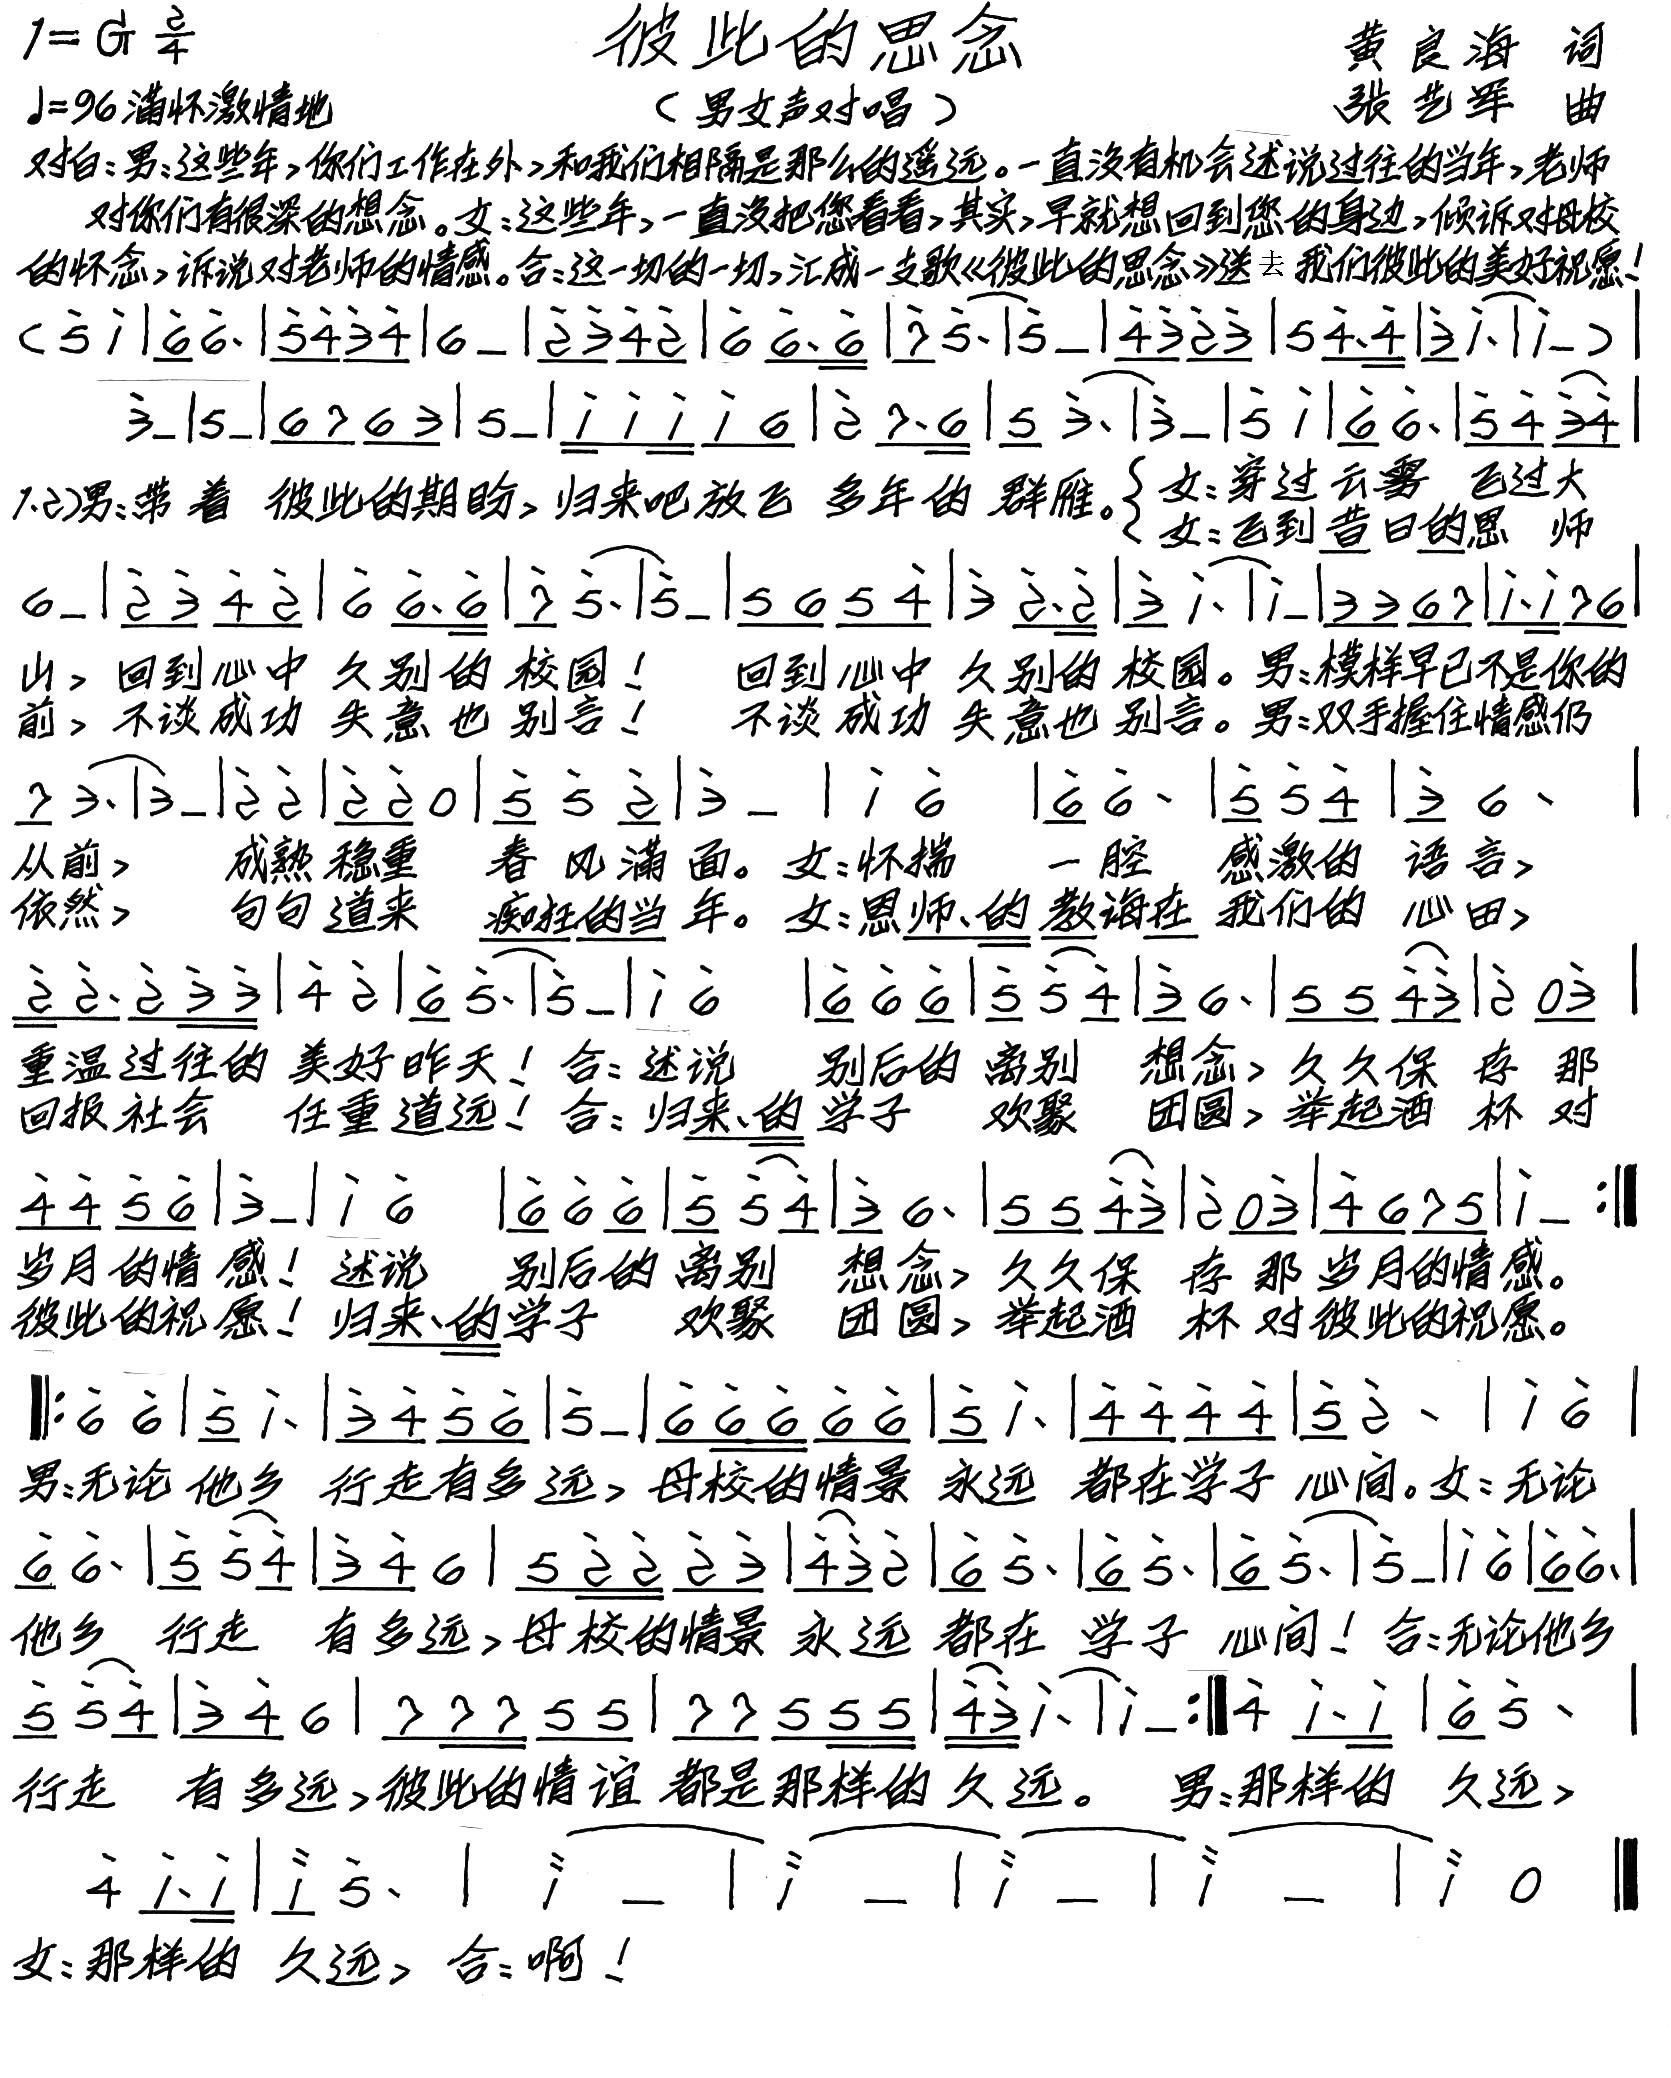 1=G 2/4 彼此的思念 黄良海 词
♩=96 满怀激情地 (男女声对唱) 张艺军 曲
对白:男:这些年,你们工作在外,和我们相隔是那么的遥远。一直没有机会述说过往的当年,老师
对你们有很深的想念。女:这些年,一直没把您看看,其实,早就想回到您的身边,倾诉对母校
的怀念,诉说对老师的情感。合:这一切的一切,汇成一支歌《彼此的思念》送去我们彼此的美好祝愿!
(5̇ i̇|6̇ 6̇·|5̇4̇3̇4̇|6 -|2̇3̇4̇2̇|6̇ 6̇·6̇|7̇ 5̇·|5̇ -|4̇3̇2̇3̇|5 4̇·4̇|3̇ i̇·|i̇ -)|
3̇ -|5 -|6 7 6 3|5 -|i̇ i̇ i̇ i̇ 6|2̇ 7·6|5 3̇·|3̇ -|5̇ i̇|6̇ 6̇·|5̇ 4̇ 3̇4̇|
1.2)男:带着 彼此的期盼,归来吧放飞 多年的 群雁。{女:穿过云雾 飞过大
女:飞到昔日的恩 师
6 -|2̇ 3̇ 4̇ 2̇|6̇ 6̇·6̇|7̇ 5̇·|5̇ -|5 6 5 4̇|3̇ 2̇·2̇|3̇ i̇·|i̇ -|3 3 6 7|i̇·i̇ 7 6|
山,回到心中 久别的 校园! 回到心中 久别的 校园。男:模样早已不是你的
前,不谈成功 失意也 别言! 不谈成功 失意也 别言。男:双手握住情感仍
7 3·|3 -|2̇ 2̇|2̇ 2̇ 0|5̇ 5̇ 2̇|3̇ -|i̇ 6̇|6̇ 6̇·|5̇ 5̇ 4̇|3̇ 6·|
从前, 成熟 稳重 春风满面。女:怀揣 一腔 感激的 语言,
依然, 句句道来 痴狂的当年。女:恩师、的教诲在 我们的 心田,
2̇ 2̇·2̇ 3̇ 3̇|4̇ 2̇|6̇ 5̇·|5̇ -|i̇ 6̇|6̇ 6̇ 6̇|5̇ 5̇ 4̇|3̇ 6·|5 5 4̇3̇|2̇ 0 3̇|
重温过往的 美好昨天!合:述说 别后的 离别 想念,久久保 存 那
回报社会 任重道远!合:归来、的学子 欢聚 团圆,举起酒 杯 对
4̇ 4̇ 5̇ 6̇|3̇ -|i̇ 6̇|6̇ 6̇ 6̇|5̇ 5̇ 4̇|3̇ 6·|5 5 4̇3̇|2̇ 0 3̇|4̇ 6 7 5|i̇ -:‖
岁月的情感!述说 别后的 离别 想念,久久保 存 那 岁月的情感。
彼此的祝愿!归来、的学子 欢聚 团圆,举起酒 杯 对彼此的祝愿。
‖:6̇ 6̇|5̇ i̇·|3̇ 4̇ 5̇ 6̇|5̇ -|6̇ 6̇ 6̇ 6̇ 6̇|5̇ i̇·|4̇ 4̇ 4̇ 4̇|5̇ 2̇·|i̇ 6̇|
男:无论 他乡 行走有多远,母校的情景 永远 都在学子 心间。女:无论
6̇ 6̇·|5̇ 5̇4̇|3̇ 4̇ 6|5 2̇ 2̇ 2̇ 3̇|4̇3̇2̇|6̇ 5̇·|6̇ 5̇·|6̇ 5̇·|5̇ -|i̇ 6̇|6̇ 6̇·|
他乡 行走 有多远,母校的情景 永远 都在 学子 心间!合:无论他乡
5̇ 5̇4̇|3̇ 4̇ 6|7 7 7 5 5|7 7 5 5 5|4̇3̇ i̇·|i̇ -:‖4̇ i̇·i̇|6̇ 5̇·|
行走 有多远,彼此的情谊 都是那样的久远。 男:那样的 久远,
4̇ i̇·i̇|i̇ 5̇·|i̇ -|i̇ -|i̇ -|i̇ -|i̇ 0‖
女:那样的 久远,合:啊!